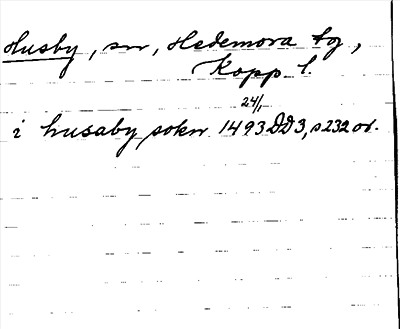 Husby, sn, Hedemora tg,
Kopp. l.
24/1
i husaby sokn 1493 DD3, s232 or.